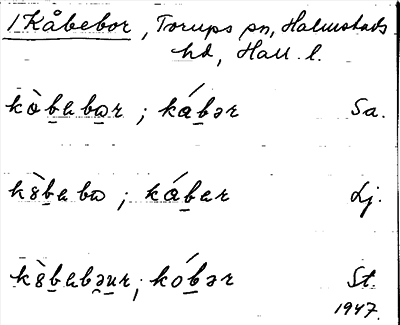 1 Kåbebor, Torups sn, Halmstads
hd, Hall. l.
kòbebɷr ; kábər Sa.
k8̀beba ; káber Lj.
k8̀bebəur, kóbər St.
1947.